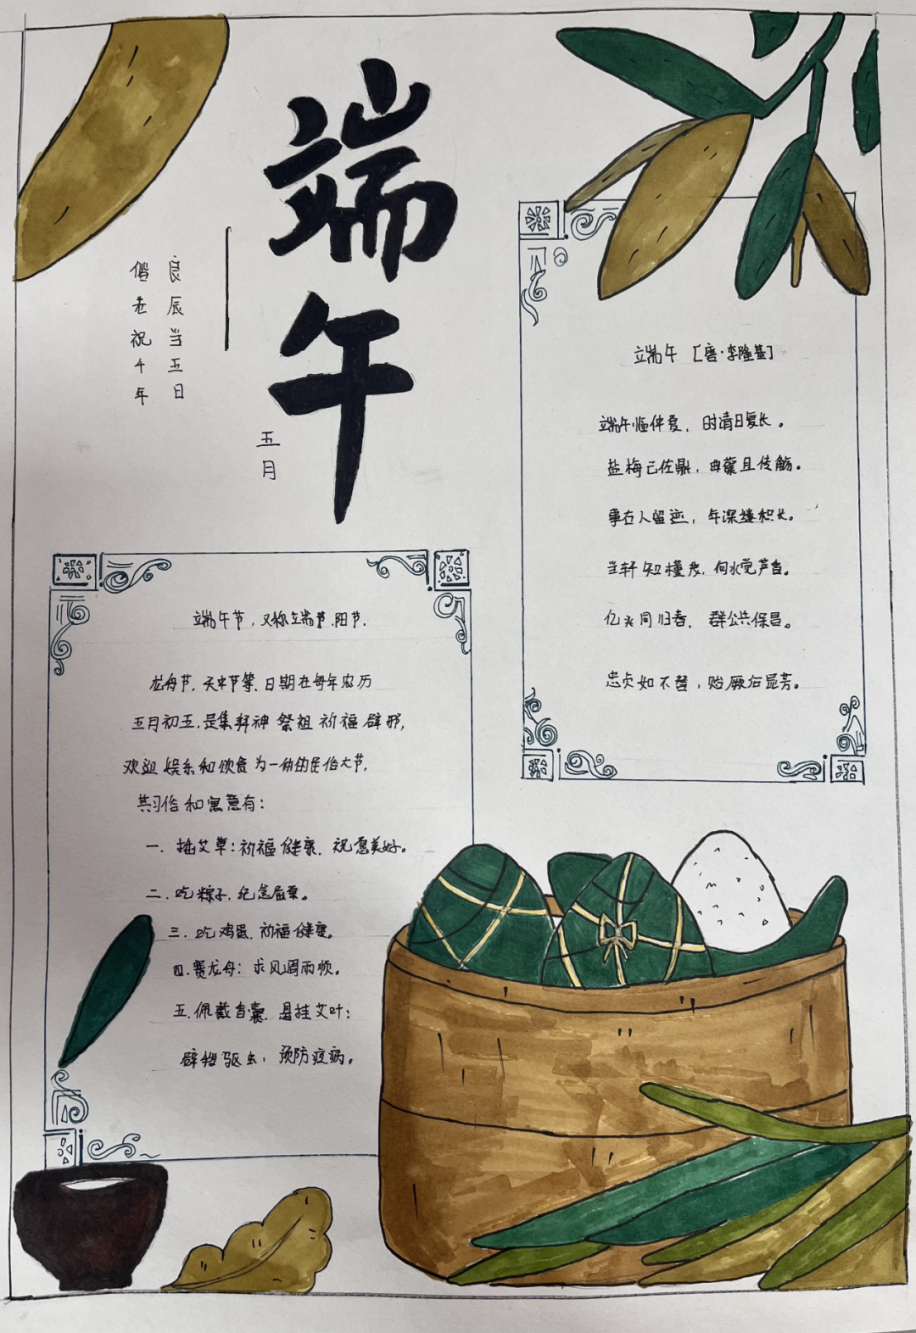 端午
五月
良辰当五日
偕老祝千年
端午 [唐·李隆基]
端午临仲夏，时清日复长。
盐梅已佐鼎，曲蘖且传觞。
事古人留迹，年深缕积长。
当轩知槿茂，向水觉芦香。
亿兆同归寿，群公共保昌。
忠贞如不替，贻厥后昆芳。
端午节，又称端节.阳节.
龙舟节.天中节等、日期在每年农历
五月初五.是集拜神 祭祖 祈福 辟邪,
欢迎 娱乐和饮食为一体的民俗大节,
其习俗和寓意有：
一. 插艾草：祈福健康、祝愿美好。
二. 吃粽子, 纪念屈原。
三. 吃鸡蛋, 祈福健康。
四. 赛龙舟：求风调雨顺。
五. 佩戴香囊、悬挂艾叶：
辟邪驱虫，预防疫病。